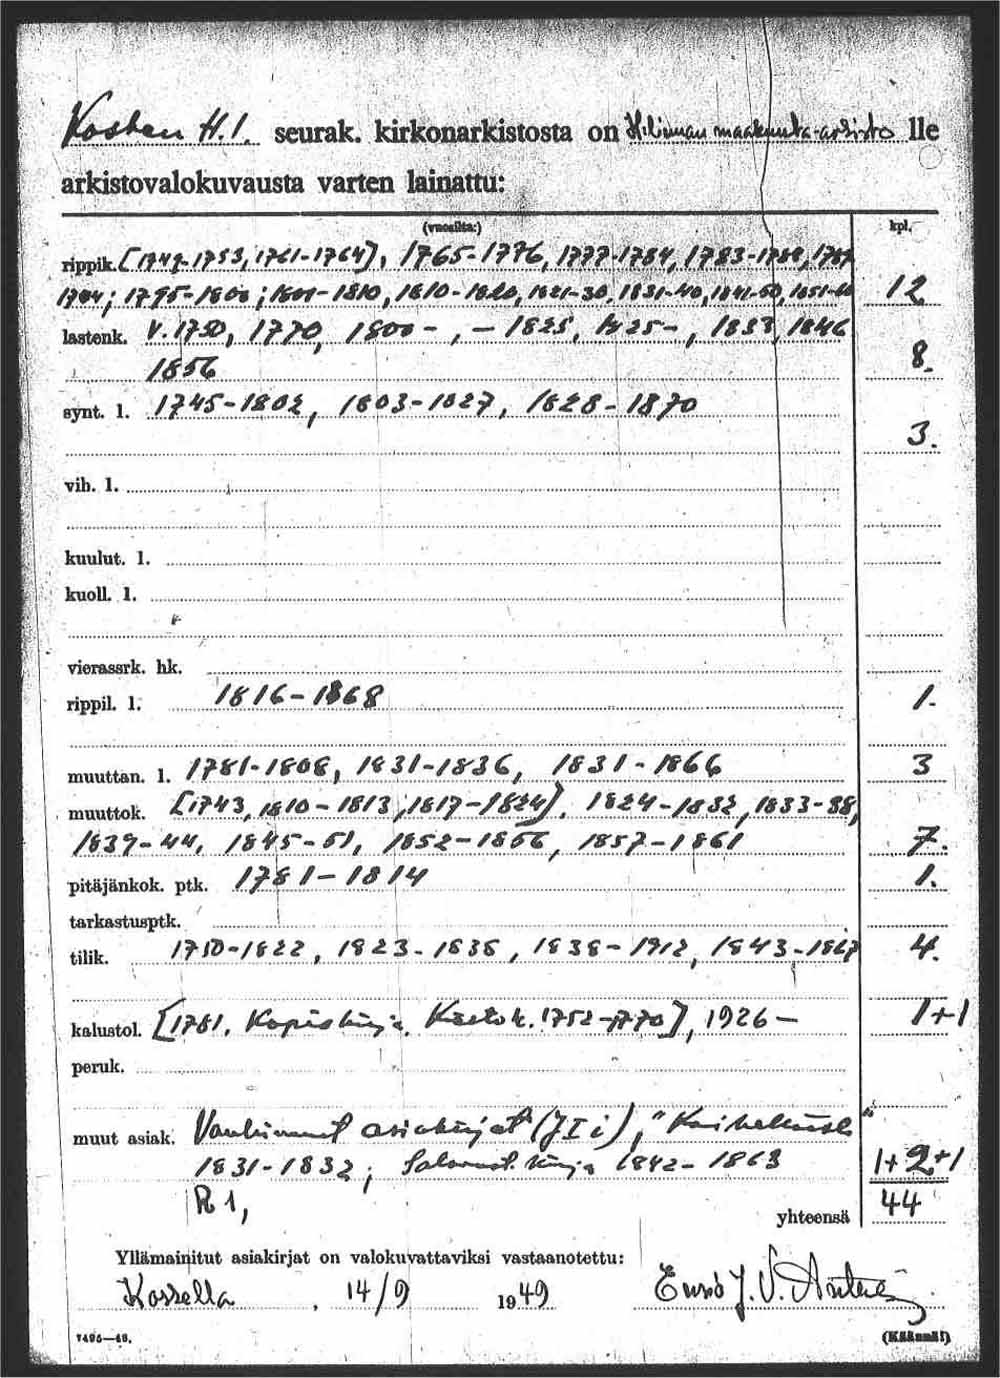 Kosken H.l. seurak. kirkonarkistosta on Hämeenlinnan maakunta-arkisto lle
arkistovalokuvausta varten lainattu:
(vuosilta:) kpl.
rippik. [1747-1753, 1761-1764], 1765-1776, 1777-1784, 1783-1789, 1789
1794; 1795-1800; 1801-1810, 1810-1820, 1821-30, 1831-40, 1841-50, 1851-60 12
lastenk. V. 1750, 1770, 1800- , - 1825, 1825- , 1833, 1846
1856 8.
synt. l. 1745-1802, 1803-1827, 1828-1870
3.
vih. l.
kuulut. l.
kuoll. l.
vierassrk. hk.
rippil. l. 1816-1868 1.
muuttan. l. 1781-1808, 1831-1836, 1831-1866 3
muuttok. [1743, 1810-1813, 1817-1824], 1824-1832, 1833-38,
1839-44, 1845-51, 1852-1856, 1857-1861 7.
pitäjänkok. ptk. 1781-1814 1.
tarkastusptk.
tilik. 1750-1822, 1823-1838, 1838-1912, 1843-1867 4.
kalustol. [1781, Kopiokirja, 1752-1770], 1926- 1+1
peruk.
muut asiak. Vanhimmat asiakirjat (J I i),
1831-1832; kirja 1842-1863 1+2+1
R 1,
yhteensä 44
Yllämainitut asiakirjat on valokuvattaviksi vastaanotettu:
Koskella, 14/9 1949 Ensio J. V.
7495—48. (Käännä!)